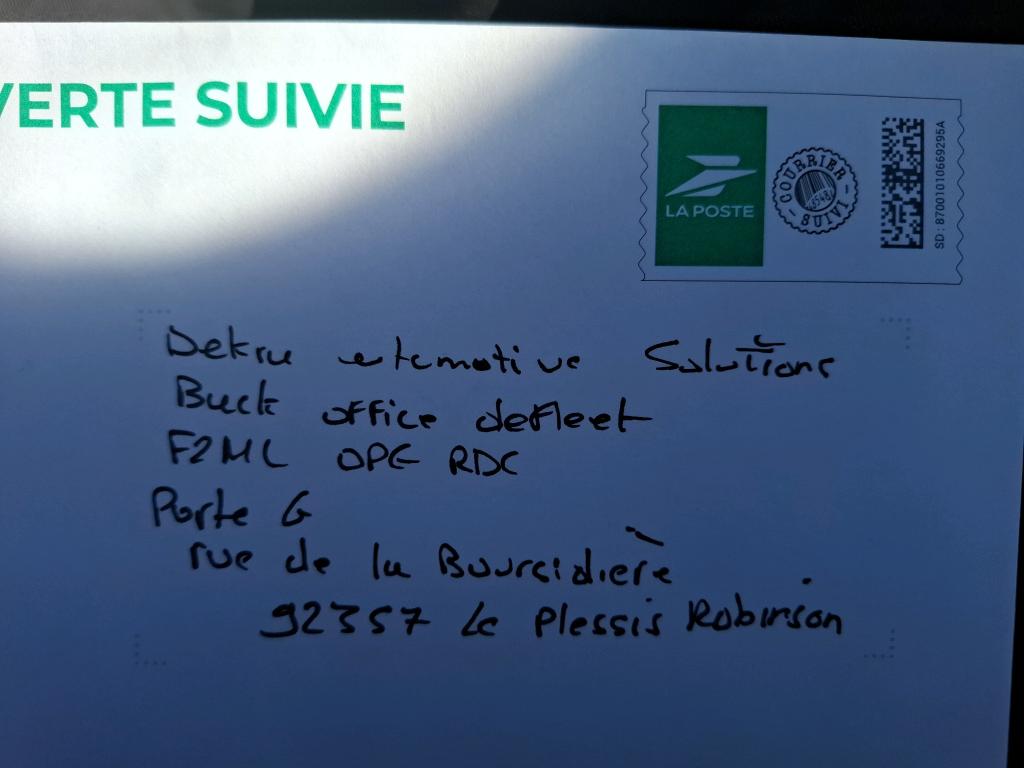 VERTE SUIVIE
LA POSTE
COURRIER SUIVI
SD : 87001010669295A
Dekra automotive Solutions
Back office defleet
F2ML OPE RDC
Porte G
rue de la Boursidière
92357 Le Plessis Robinson